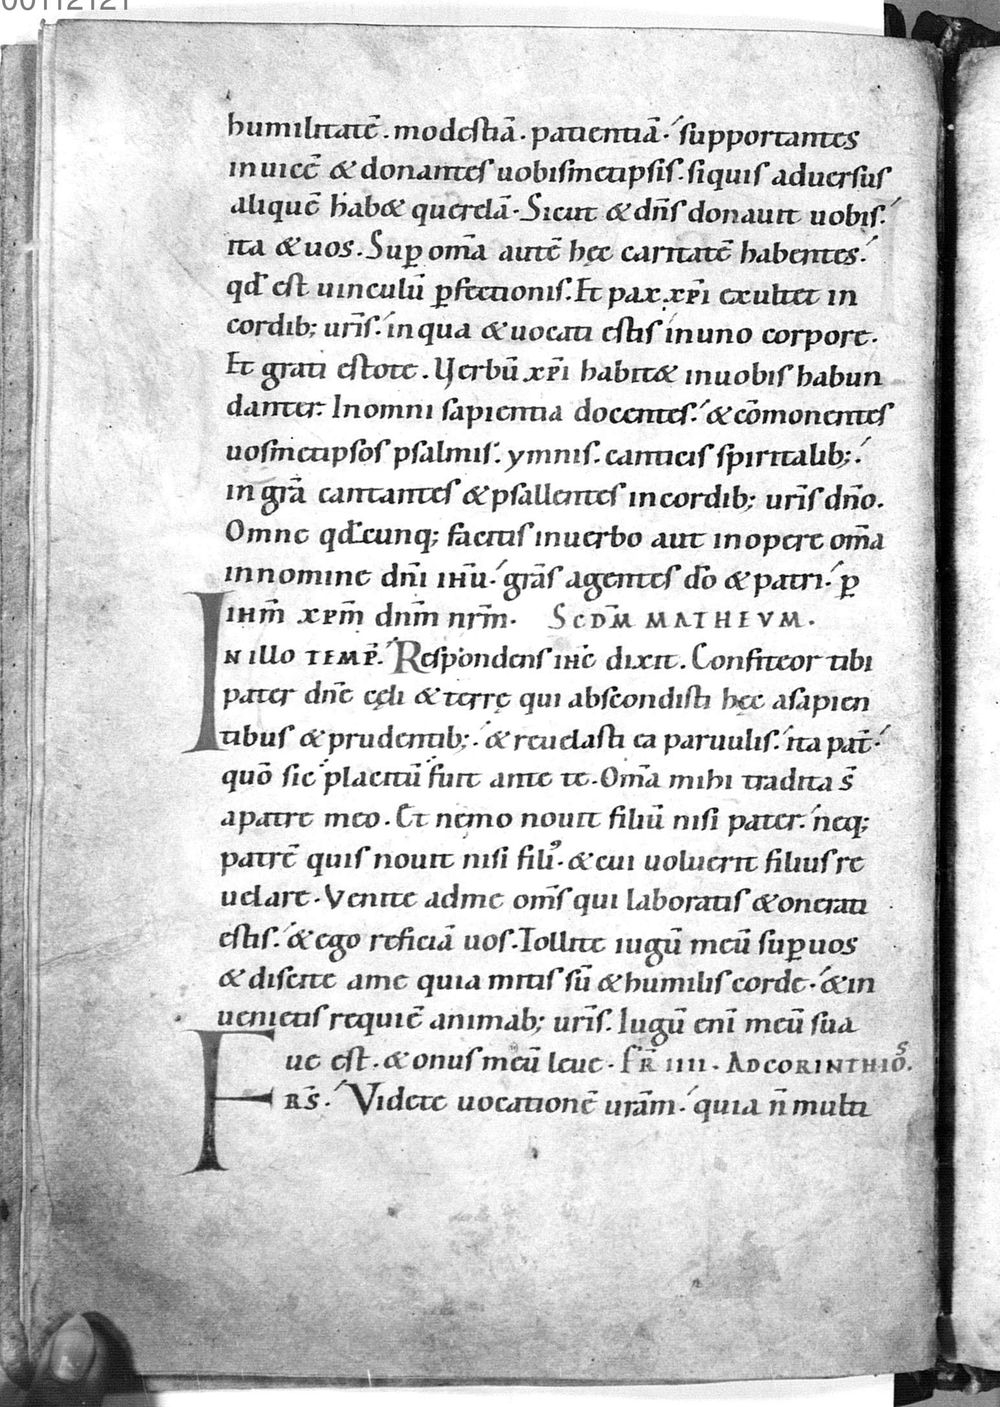 humilitatē. modestiā. patientiā. supportantes
inuicē & donantes uobismetipsis. siquis aduersus
aliquē hab& querelā. Sicut & dn̄s donauit uobis.
ita & uos. Suꝑ om̄a autē hęc caritatē habentes.
qđ est uinculū ꝑfectionis. Et pax xp̄i exultet in
cordib; ur̄is. in qua & uocati estis in uno corpore.
Et grati estote. Verbū xp̄i habit& inuobis habun
danter. Inomni sapientia docentes. & cōmonentes
uosmetipsos psalmis. ymnis. canticis spiritalib;.
in gr̄a cantantes & psallentes incordib; ur̄is dn̄o.
Omne qđcunq; facitis inuerbo aut inopere om̄a
innomine dn̄i ihū. gr̄as agentes dō & patri. ꝑ
ihm̄ xpm̄ dnm̄ nrm̄. SCDM̄ MATHEVM.
IN illo TEMP̄. Respondens ihc̄ dixit. Confiteor tibi
pater dn̄e cęli & terrę qui abscondisti hęc asapien
tibus & prudentib;. & reuelasti ea paruulis. ita pat̄.
quō sic placitū fuit ante te. Om̄a mihi tradita s̄
apatre meo. Et nemo nouit filiū nisi pater. neq;
patrē quis nouit nisi fili᾽. & cui uoluerit filius re
uelare. Venite adme om̄s qui laboratis & onerati
estis. & ego reficiā uos. Tollite iugū meū suꝑuos
& discite ame quia mitis sū & humilis corde. & in
uenietis requiē animab; ur̄is. Iugū enī meū sua
ue est. & onus meū leue. FR̄ IIII. ADCORINTHIOS.
FRS̄. Videte uocationē urām. quia n̄ multi